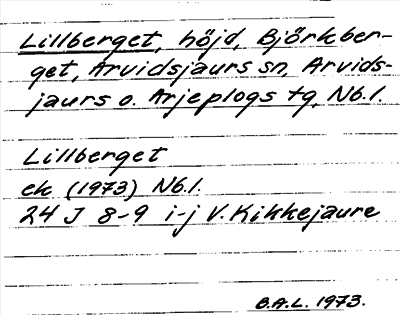 Lillberget, höjd, Björkber-
get, Arvidsjaurs sn, Arvids-
jaurs o. Arjeplogs tg, Nb.l.
Lillberget
ek (1973) Nb.l.
24 J 8-9 i-j V. Kikkejaure
B.A.L. 1973.